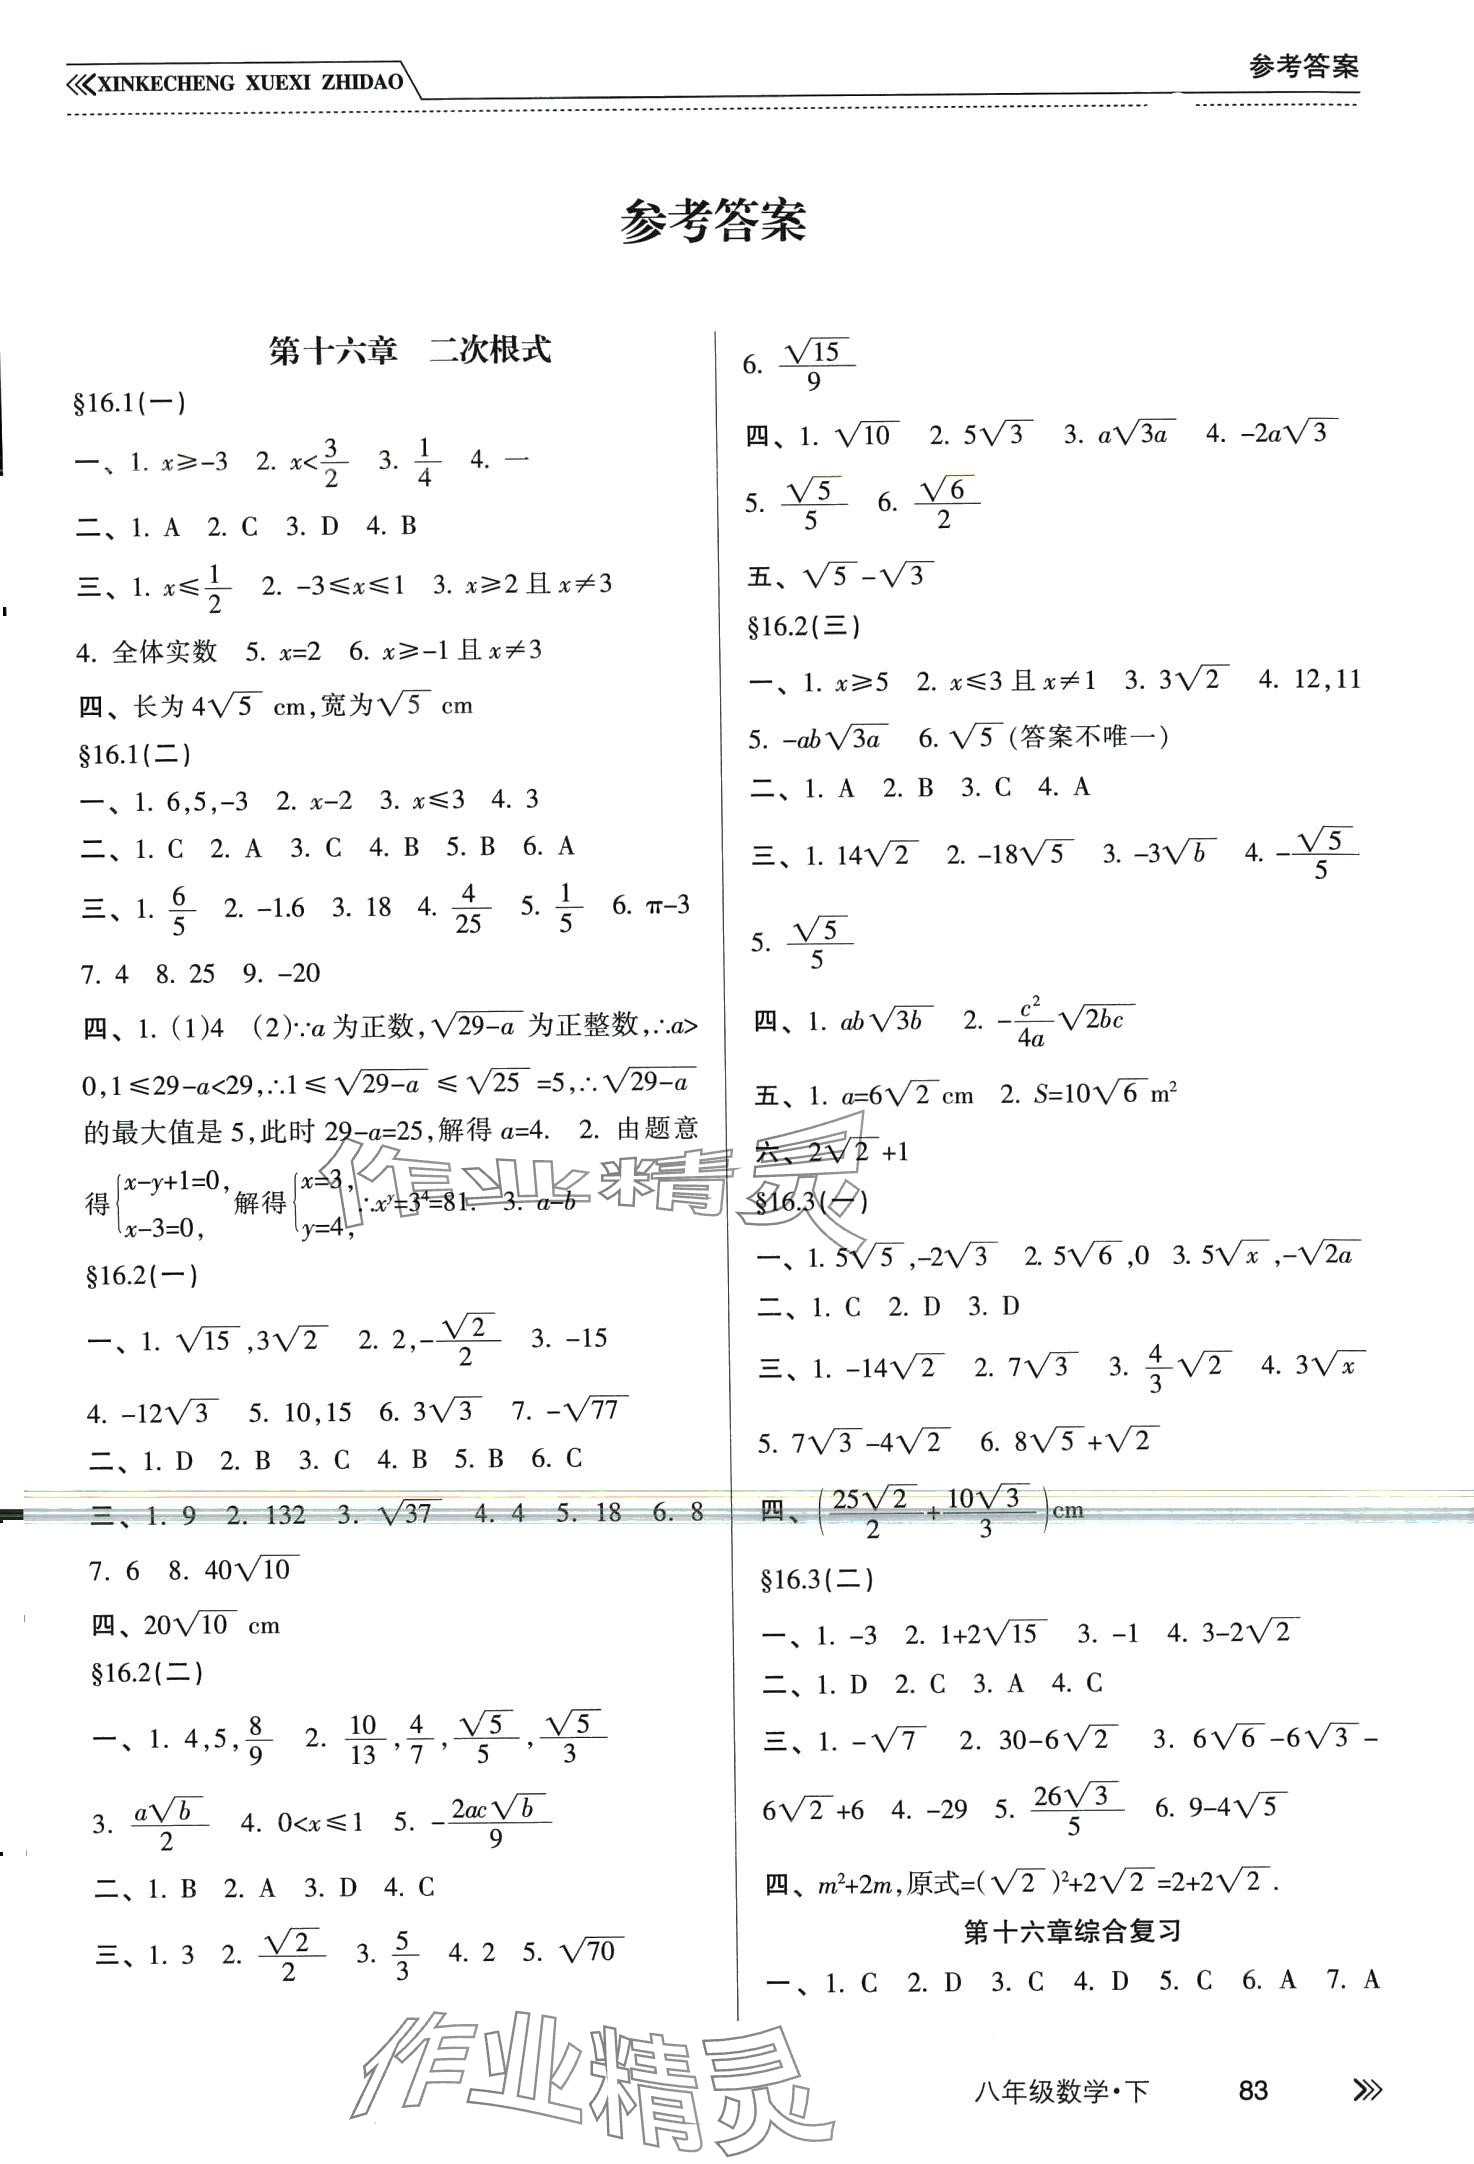 XINKECHENG XUEXI ZHIDAO
参考答案
参考答案
第十六章 二次根式
§16.1(一)
一、1. x≥-3 2. x<3/2 3. 1/4 4. 一
二、1. A 2. C 3. D 4. B
三、1. x≤1/2 2. -3≤x≤1 3. x≥2且x≠3
4. 全体实数 5. x=2 6. x≥-1且x≠3
四、长为4√5 cm,宽为√5 cm
§16.1(二)
一、1. 6,5,-3 2. x-2 3. x≤3 4. 3
二、1. C 2. A 3. C 4. B 5. B 6. A
三、1. 6/5 2. -1.6 3. 18 4. 4/25 5. 1/5 6. π-3
7. 4 8. 25 9. -20
四、1. (1)4 (2)∵a为正数,√(29-a)为正整数,∴a>
0,1≤29-a<29,∴1≤√(29-a)≤√25=5,∴√(29-a)
的最大值是5,此时29-a=25,解得a=4. 2. 由题意
得{x-y+1=0, x-3=0, 解得{x=3, y=4, ∴xʸ=3⁴=81. 3. a-b
§16.2(一)
一、1. √15,3√2 2. 2,-√2/2 3. -15
4. -12√3 5. 10,15 6. 3√3 7. -√77
二、1. D 2. B 3. C 4. B 5. B 6. C
三、1. 9 2. 132 3. √37 4. 4 5. 18 6. 8
7. 6 8. 40√10
四、20√10 cm
§16.2(二)
一、1. 4,5,8/9 2. 10/13,4/7,√5/5,√5/3
3. a√b/2 4. 0<x≤1 5. -2ac√b/9
二、1. B 2. A 3. D 4. C
三、1. 3 2. √2/2 3. 5/3 4. 2 5. √70
6. √15/9
四、1. √10 2. 5√3 3. a√(3a) 4. -2a√3
5. √5/5 6. √6/2
五、√5-√3
§16.2(三)
一、1. x≥5 2. x≤3且x≠1 3. 3√2 4. 12,11
5. -ab√(3a) 6. √5(答案不唯一)
二、1. A 2. B 3. C 4. A
三、1. 14√2 2. -18√5 3. -3√b 4. -√5/5
5. √5/5
四、1. ab√(3b) 2. -c²/4a√(2bc)
五、1. a=6√2 cm 2. S=10√6 m²
六、2√2+1
§16.3(一)
一、1. 5√5,-2√3 2. 5√6,0 3. 5√x,-√(2a)
二、1. C 2. D 3. D
三、1. -14√2 2. 7√3 3. 4/3√2 4. 3√x
5. 7√3-4√2 6. 8√5+√2
四、(25√2/2+10√3/3)cm
§16.3(二)
一、1. -3 2. 1+2√15 3. -1 4. 3-2√2
二、1. D 2. C 3. A 4. C
三、1. -√7 2. 30-6√2 3. 6√6-6√3-
6√2+6 4. -29 5. 26√3/5 6. 9-4√5
四、m²+2m,原式=(√2)²+2√2=2+2√2.
第十六章综合复习
一、1. C 2. D 3. C 4. D 5. C 6. A 7. A
作业精灵
作业精灵
八年级数学·下 83